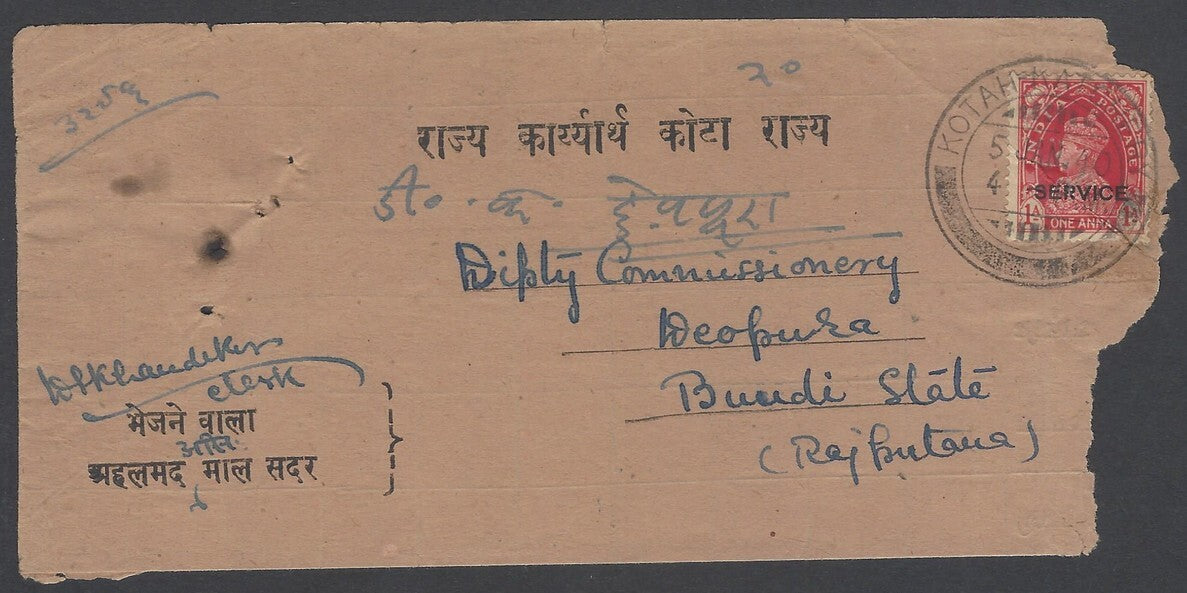 २०
राज्य कार्य्यार्थ कोटा राज्य
डी० के०
Dipty Commissionery
Deopura
Bundi State
(Rajputana)
KOTAH
5 JAN. 40
INDIA POSTAGE
SERVICE
1A ONE ANNA 1A
Khandekar
clerk
भेजने वाला
अहलमद माल सदर